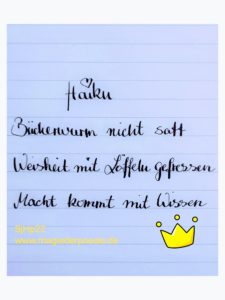 Haiku
Bücherwurm nicht satt
Weisheit mit Löffeln gefressen
Macht kommt mit Wissen
www.magiederpoesie.de